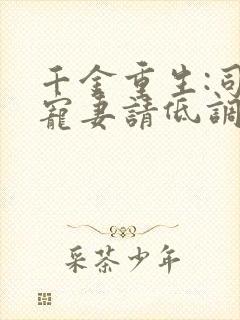 千金重生:司
寵妻請低調
采茶少年